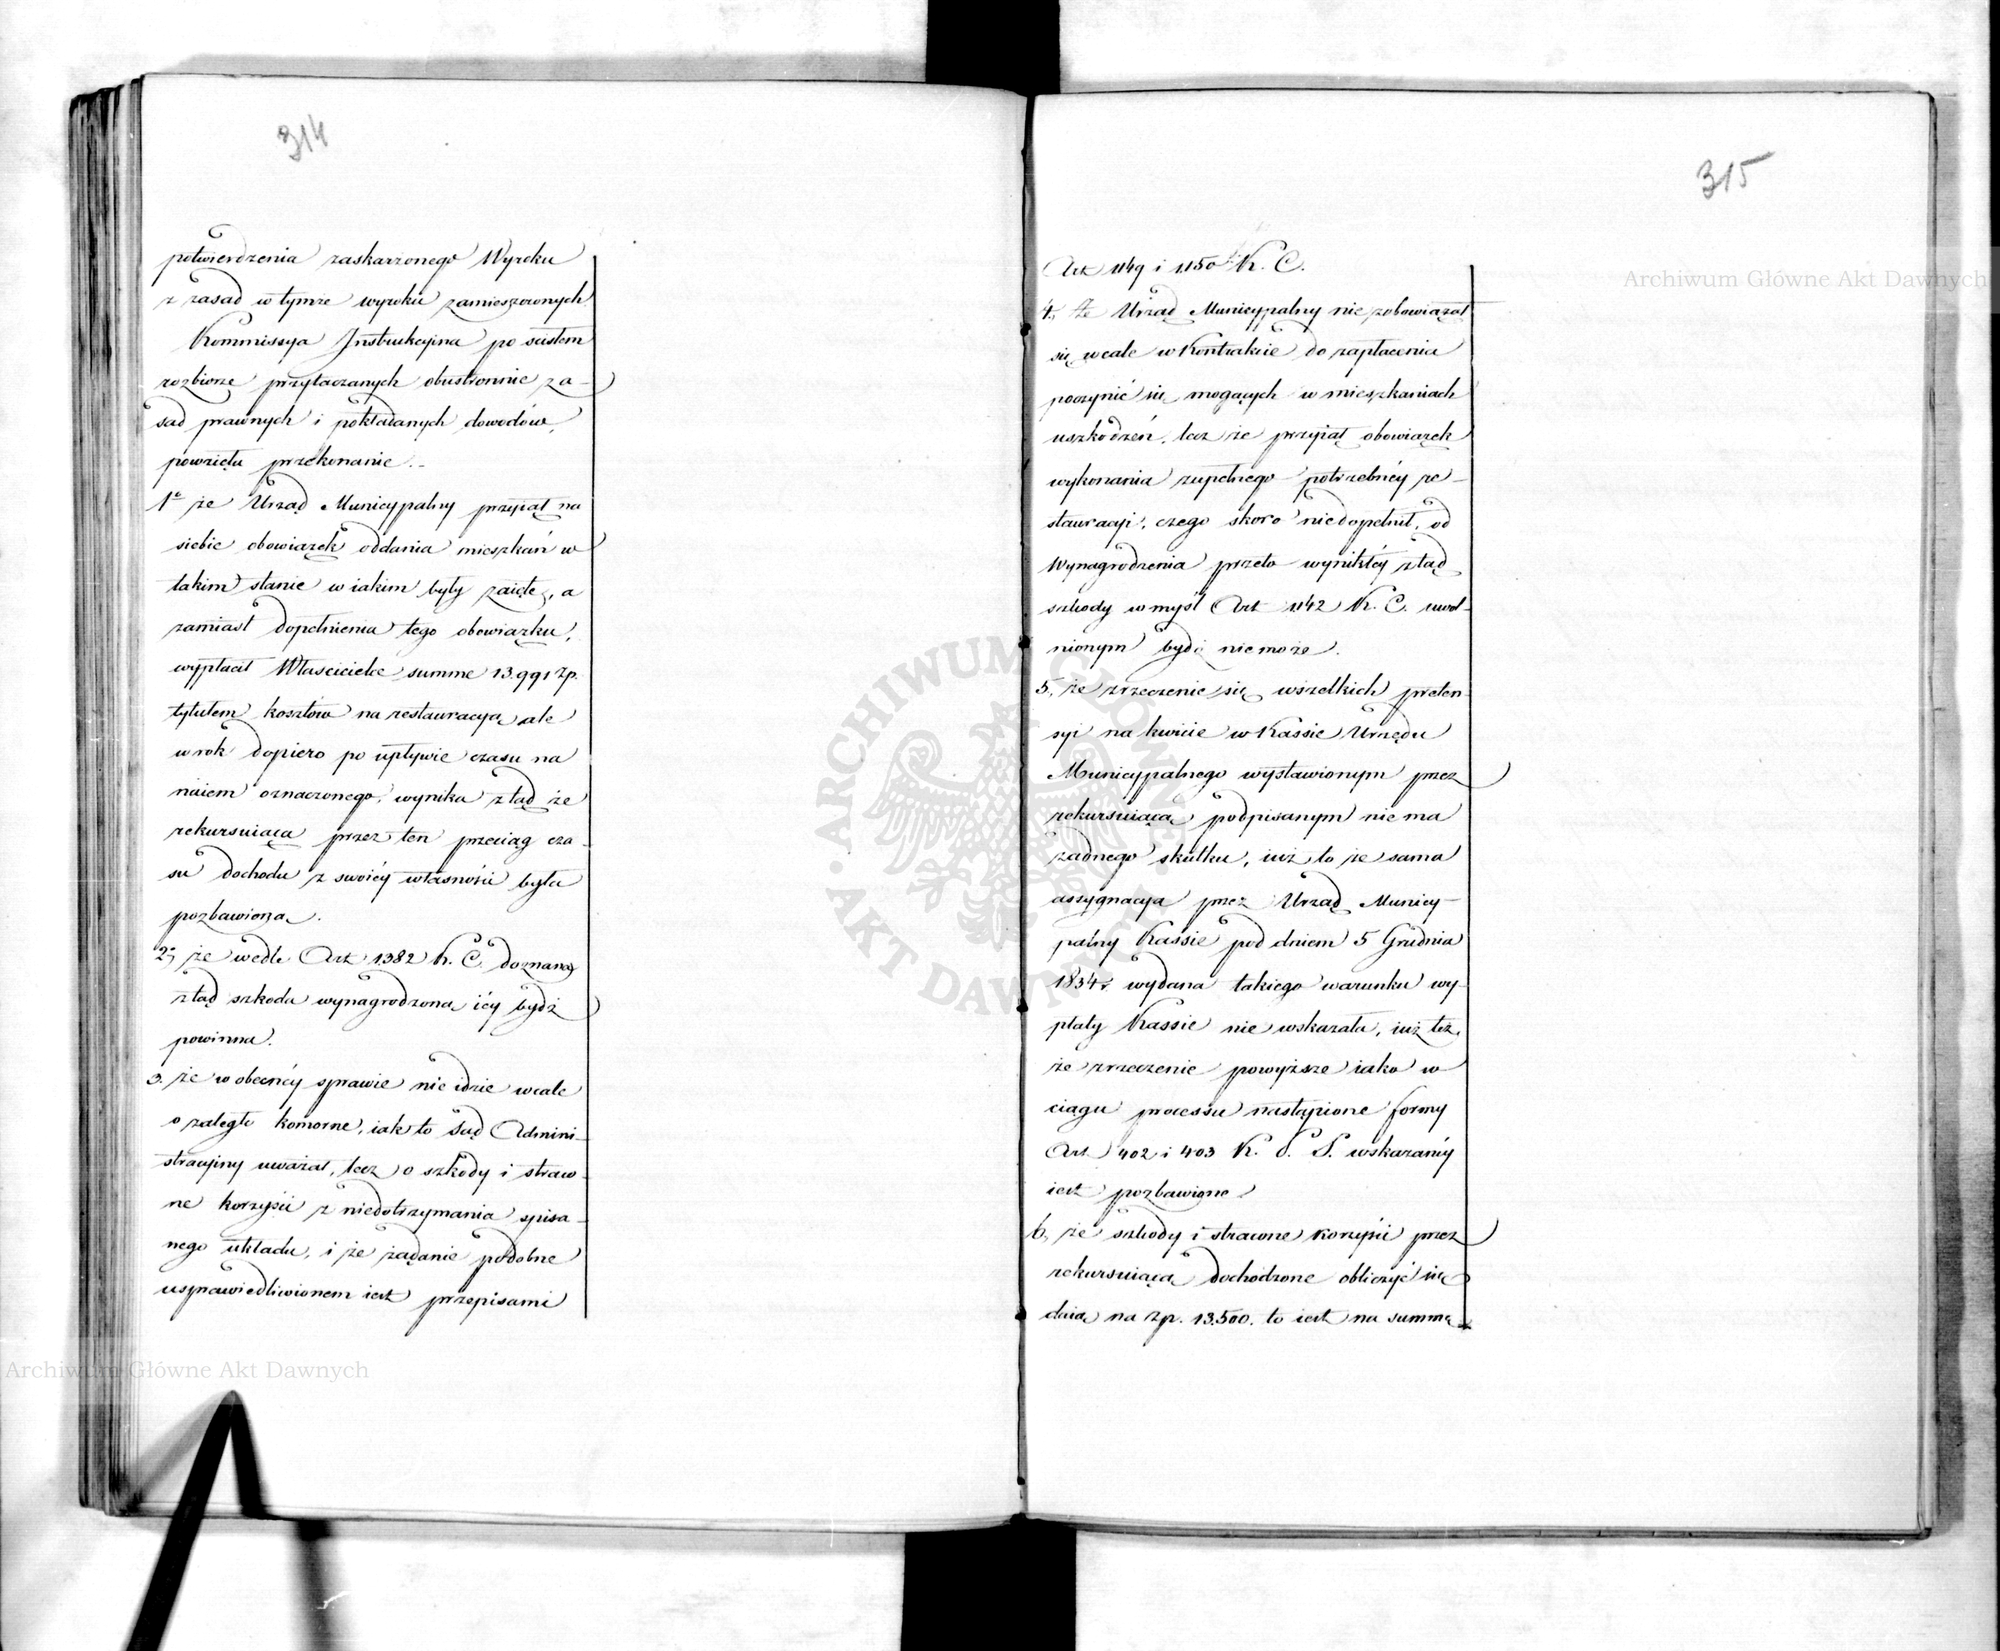 314
potwierdzenia zaskarzonego Wyroku
z zasad w tymże wyroku zamieszczonych.
Kommissya Instrukcyina po ścisłem
rozbiorze przytaczanych obustronnie za-
sad prawnych i pokładanych dowodów,
powzięła przekonanie.
1º że Urząd Municypalny przyiął na
siebie obowiązek oddania mieszkań w
takim stanie w iakim były zaięte, a
zamiast dopełnienia tego obowiązku,
wypłacił Właścicielce summe 13.991 zp.
tytułem kosztów na restauracyą, ale
w rok dopiero po upływie czasu na
naiem oznaczonego, wynika ztąd że
rekursuiąca przez ten przeciąg cza-
su dochodu z swoiéy własności była
pozbawioną.
2; że wedle Art 1382 K. C. doznana
ztąd szkoda wynagrodzona iéy bydź
powinna.
3. że w obecnéy sprawie nie idzie wcale
o zaległe komorne, iak to Sąd Admini-
stracyiny uważał, lecz o szkody i straco-
ne korzyści z niedotrzymania spisa-
nego układu, i że żądanie podobne
usprawiedliwionem iest przepisami
315
Art 1149 i 1150 K. C.
4, że Urząd Municypalny nie zobowiązał
się wcale w Kontrakcie do zapłacenia
poczynić się mogących w mieszkaniach
uszkodzeń, lecz że przyiął obowiązek
wykonania zupełnego potrzebnéy re-
stauracyi, czego skoro niedopełnił, od
Wynagrodzenia przeto wynikłéy ztąd
szkody w myśl Art 1142 K. C. uwol-
nionym bydź niemoże.
5, że zrzeczenie się wszelkich preten-
syi na kwicie w Kassie Urzędu
Municypalnego wystawionym przez
rekursuiącą podpisanym nie ma
żadnego skutku, iuż to że sama
assygnacya przez Urząd Municy-
palny Kassie pod dniem 5 Grudnia
1834 r. wydana takiego warunku wy-
płaty Kassie nie wskazała, iuż też,
że zrzeczenie powyższe iako w
ciągu processu nastąpione formy
Art 402 i 403 K. P. S. wskazanéy
iest pozbawione
6, że szkody i stracone korzyści przez
rekursuiącą dochodzone obliczyć się
daią na zp. 13.500. to iest na summę
Archiwum Główne Akt Dawnych
Archiwum Główne Akt Dawnych
ARCHIWUM GŁÓWNE AKT DAWNYCH